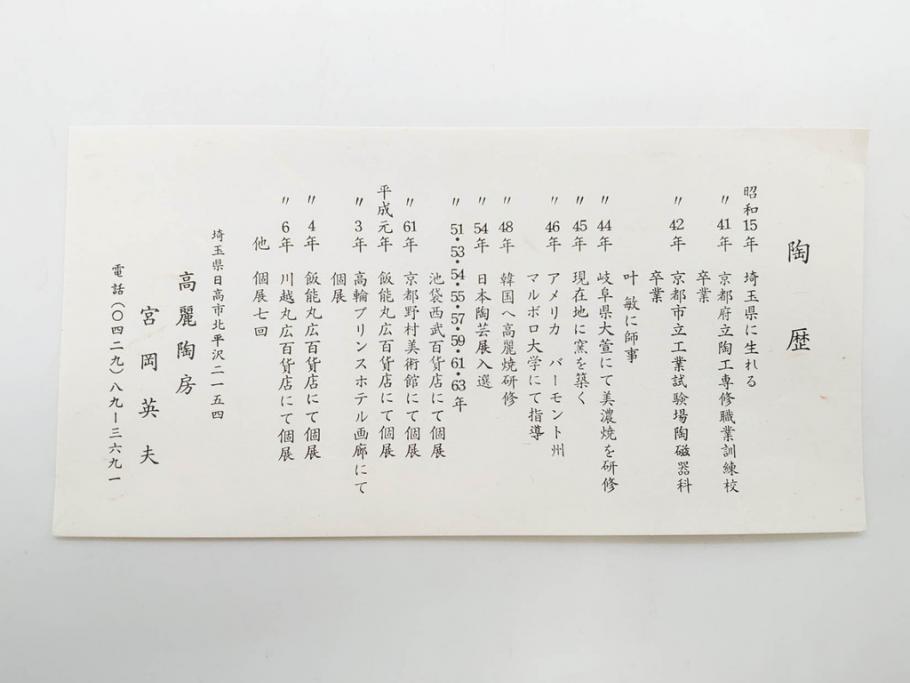 陶歴
昭和15年 埼玉県に生れる
〃 41年 京都府立陶工専修職業訓練校
卒業
〃 42年 京都市立工業試験場陶磁器科
卒業
叶 敏に師事
〃 44年 岐阜県大萱にて美濃焼を研修
〃 45年 現在地に窯を築く
〃 46年 アメリカ バーモント州
マルボロ大学にて指導
〃 48年 韓国へ高麗焼研修
〃 54年 日本陶芸展入選
〃 51・53・54・55・57・59・61・63年
池袋西武百貨店にて個展
〃 61年 京都野村美術館にて個展
平成元年 飯能丸広百貨店にて個展
〃 3年 高輪プリンスホテル画廊にて
個展
〃 4年 飯能丸広百貨店にて個展
〃 6年 川越丸広百貨店にて個展
他 個展七回
埼玉県日高市北平沢二一五四
高麗陶房
宮岡英夫
電話(〇四二九)八九ー三六九一